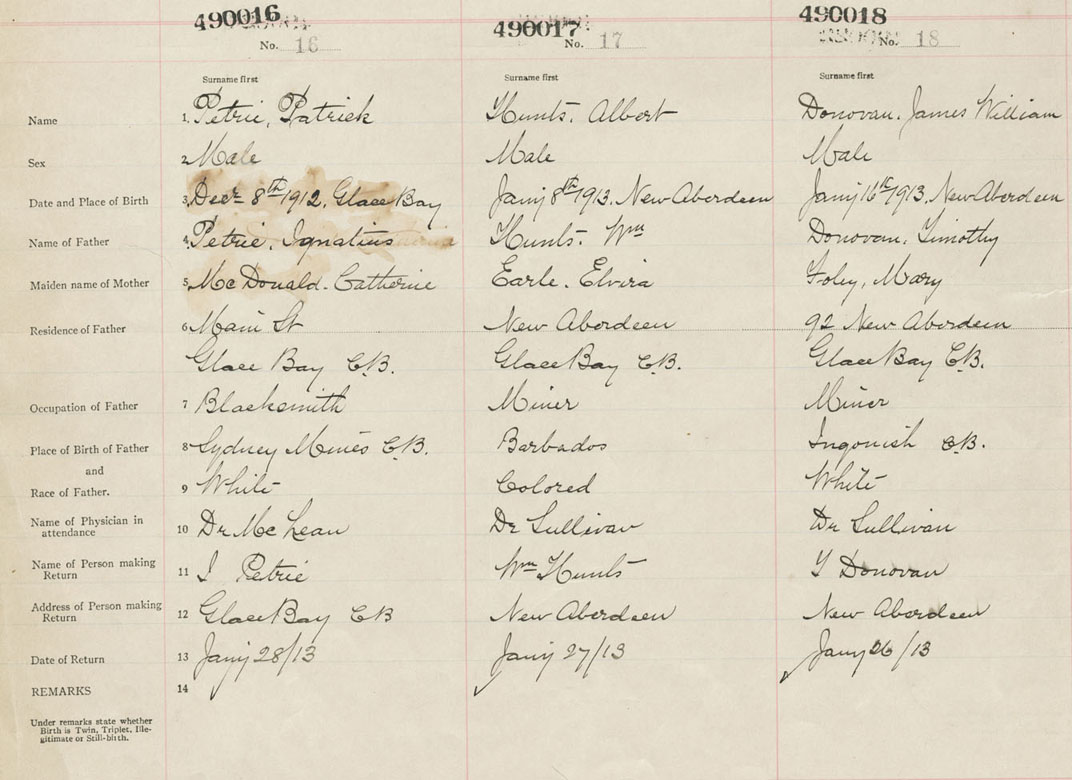 490016 490017 490018
No. 16 No. 17 No. 18
Surname first Surname first Surname first
Name 1. Petrie, Patrick Hunts. Albert Donovan. James William
Sex 2 Male Male Male
Date and Place of Birth 3. Decr 8th 1912, Glace Bay Jany 8th 1913. New Aberdeen Jany 16th 1913, New Aberdeen
Name of Father 4. Petrie, Ignatius Hunts. Wm Donovan, Timothy
Maiden name of Mother 5. McDonald. Catherine Earle. Elvira Foley, Mary
Residence of Father 6 Main St New Aberdeen 92 New Aberdeen
Glace Bay C.B. Glace Bay C.B. Glace Bay C.B.
Occupation of Father 7 Blacksmith Miner Miner
Place of Birth of Father 8 Sydney Mines C.B. Barbados Ingonish C.B.
and
Race of Father. 9 White Colored White
Name of Physician in
attendance 10 Dr McLean Dr Sullivan Dr Sullivan
Name of Person making
Return 11 I Petrie Wm Hunts T Donovan
Address of Person making
Return 12 Glace Bay CB New Aberdeen New Aberdeen
Date of Return 13 Jany 28/13 Jany 27/13 Jany 26/13
REMARKS 14
Under remarks state whether
Birth is Twin, Triplet, Ille-
gitimate or Still-birth.